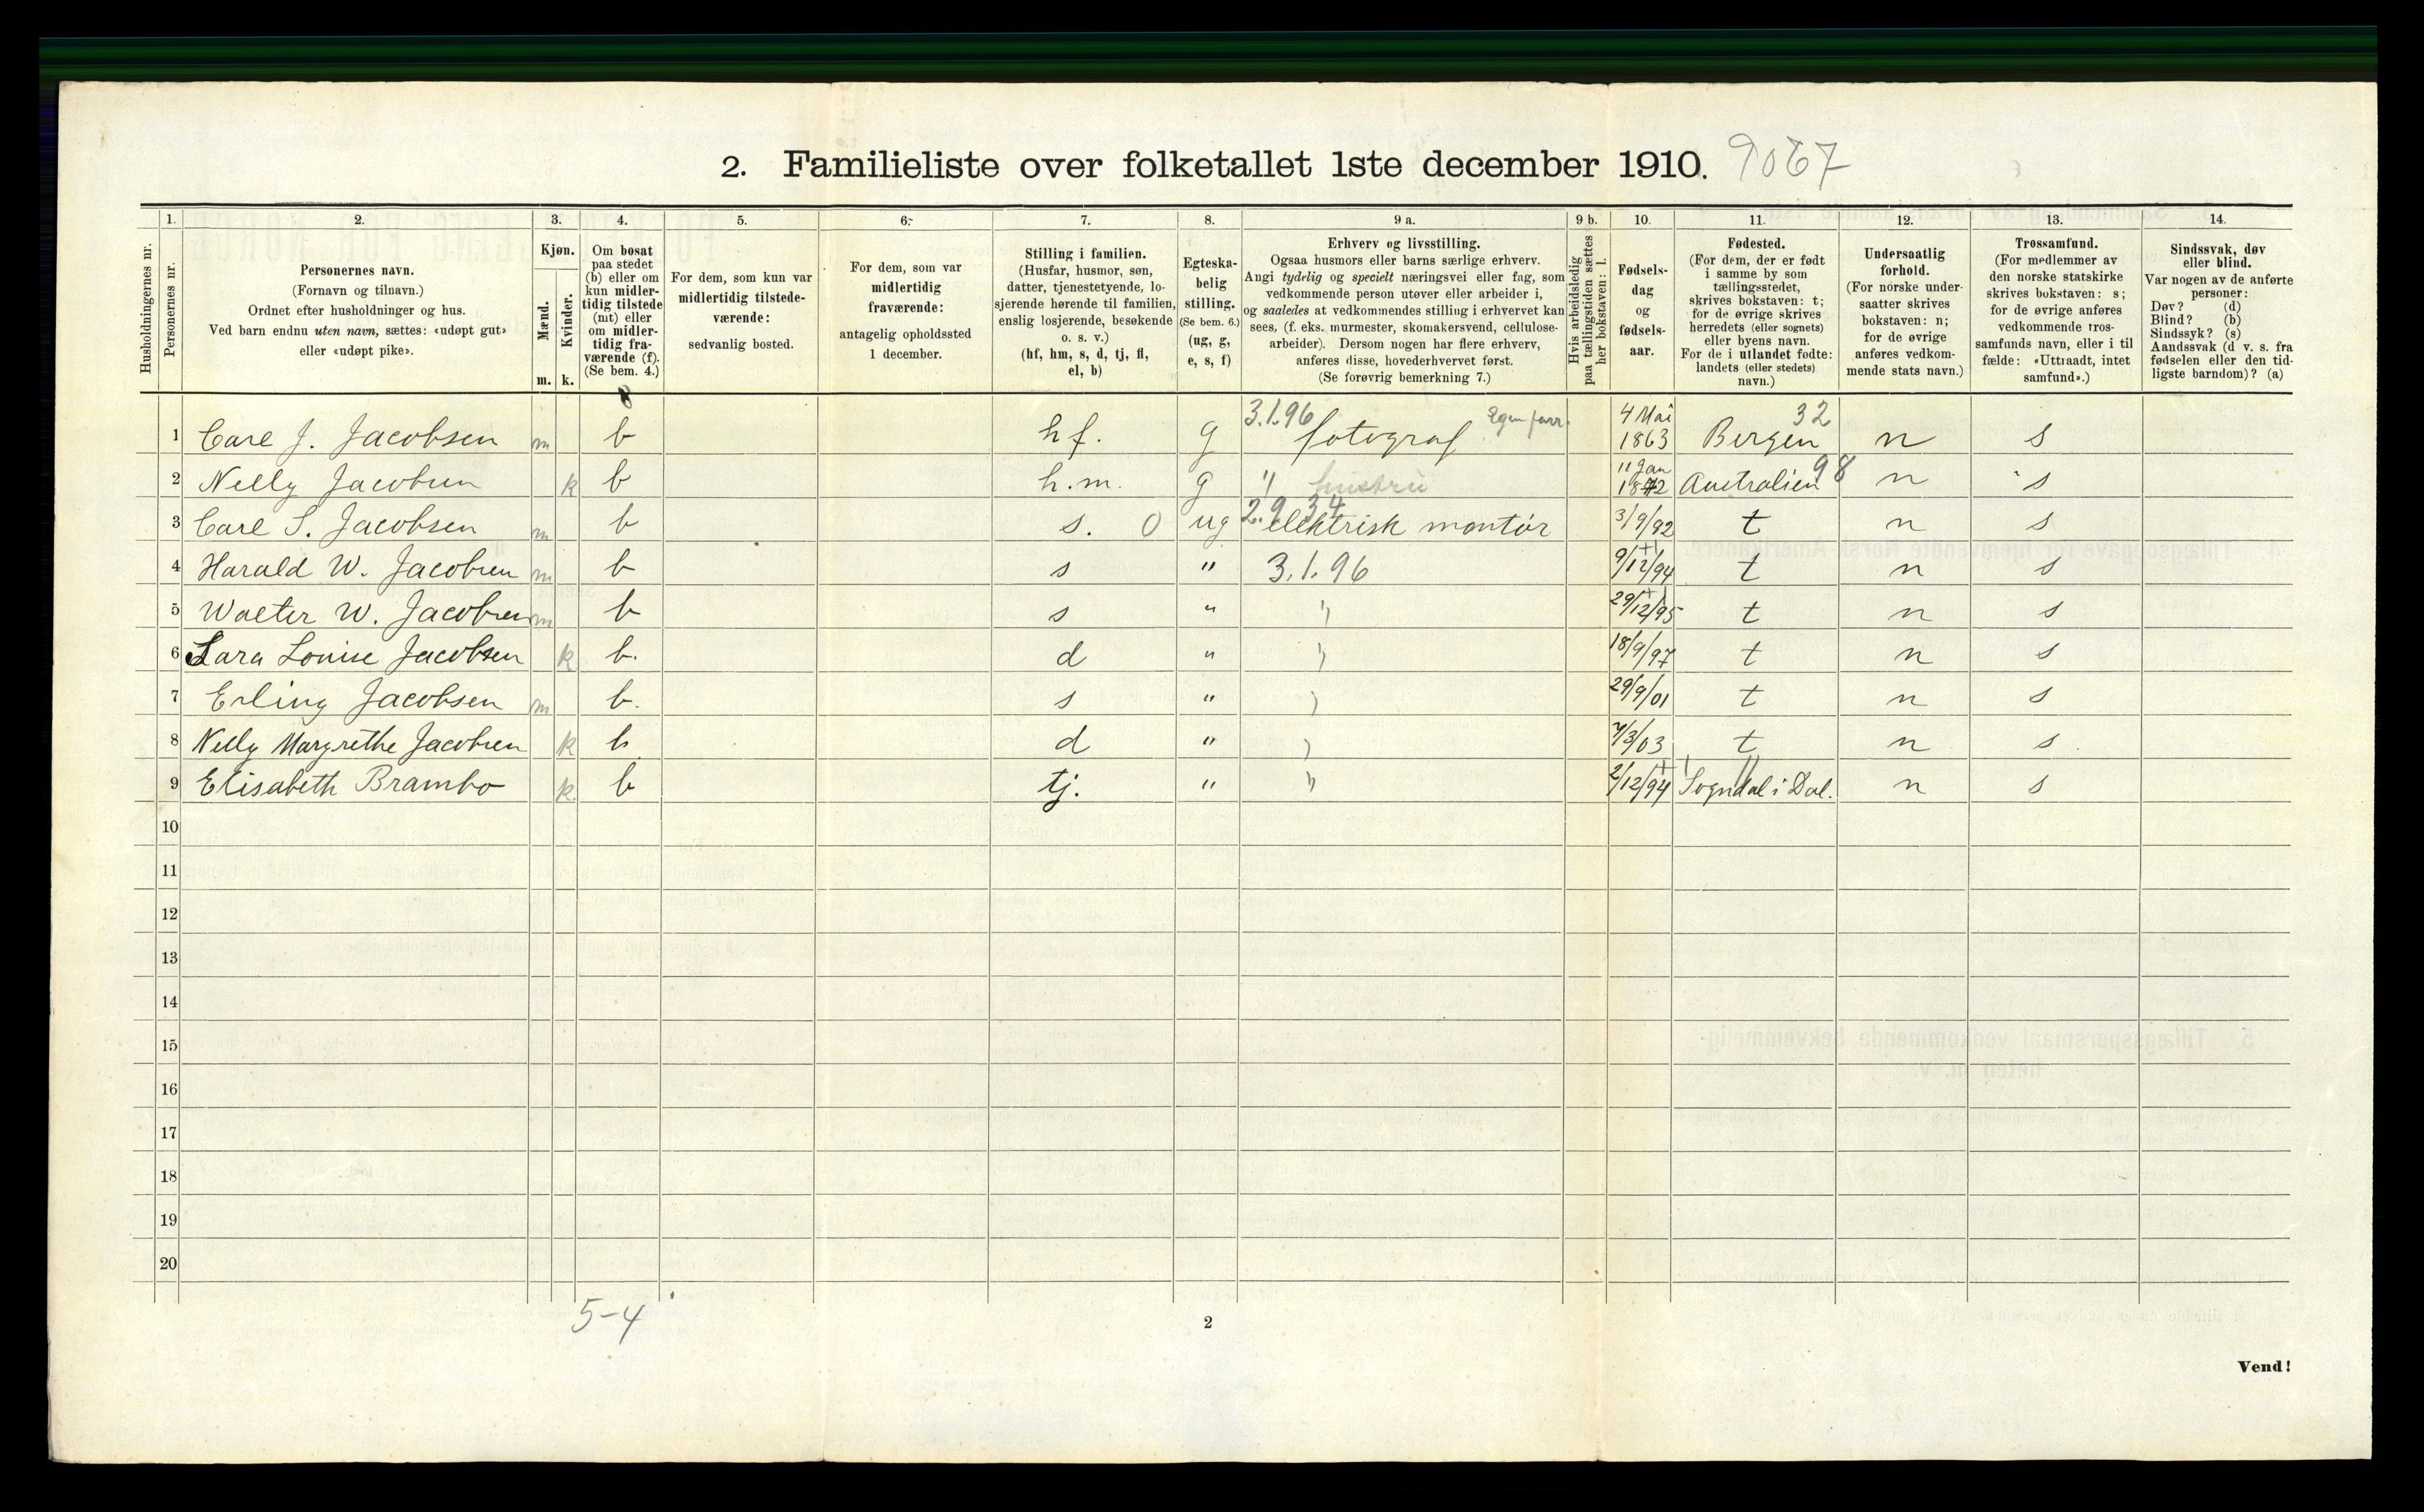 2. Familieliste over folketallet 1ste december 1910. 9067
Husholdningernes nr.
1.
Personernes nr.
2.
Personernes navn.
(Fornavn og tilnavn.)
Ordnet efter husholdninger og hus.
Ved barn endnu uten navn, sættes: «udøpt gut»
eller «udøpt pike».
3.
Kjøn.
Mænd.
Kvinder.
m. k.
4.
Om bosat
paa stedet
(b) eller om
kun midler-
tidig tilstede
(mt) eller
om midler-
tidig fra-
værende (f).
(Se bem. 4.)
5.
For dem, som kun var
midlertidig tilstede-
værende:
sedvanlig bosted.
6.
For dem, som var
midlertidig
fraværende:
antagelig opholdssted
1 december.
7.
Stilling i familien.
(Husfar, husmor, søn,
datter, tjenestetyende, lo-
sjerende hørende til familien,
enslig losjerende, besøkende
o. s. v.)
(hf, hm, s, d, tj, fl,
el, b)
8.
Egteska-
belig
stilling.
(Se bem. 6.)
(ug, g,
e, s, f)
9 a.
Erhverv og livsstilling.
Ogsaa husmors eller barns særlige erhverv.
Angi tydelig og specielt næringsvei eller fag, som
vedkommende person utøver eller arbeider i,
og saaledes at vedkommendes stilling i erhvervet kan
sees, (f. eks. murmester, skomakersvend, cellulose-
arbeider). Dersom nogen har flere erhverv,
anføres disse, hovederhvervet først.
(Se forøvrig bemerkning 7.)
9 b.
Hvis arbeidsledig
paa tællingstiden sættes
her bokstaven: l.
10.
Fødsels-
dag
og
fødsels-
aar.
11.
Fødested.
(For dem, der er født
i samme by som
tællingsstedet,
skrives bokstaven: t;
for de øvrige skrives
herredets (eller sognets)
eller byens navn.
For de i utlandet fødte:
landets (eller stedets)
navn.)
12.
Undersaatlig
forhold.
(For norske under-
saatter skrives
bokstaven: n;
for de øvrige
anføres vedkom-
mende stats navn.)
13.
Trossamfund.
(For medlemmer av
den norske statskirke
skrives bokstaven: s;
for de øvrige anføres
vedkommende tros-
samfunds navn, eller i til
fælde: «Uttraadt, intet
samfund».)
14.
Sindssvak, døv
eller blind.
Var nogen av de anførte
personer:
Døv? (d)
Blind? (b)
Sindssyk? (s)
Aandssvak (d v. s. fra
fødselen eller den tid-
ligste barndom)? (a)
1 Carl J. Jacobsen m b h f. g 3.1.96 fotograf Egen forr. 4 Mai 1863 Bergen 32 n s
2 Nelly Jacobsen k b h.m. g " hustru 11 Jan 1872 Australien 98 n s
3 Carl S. Jacobsen m b s. 0 ug 2.9.34 elektrisk montør 3/9/92 t n s
4 Harald W. Jacobsen m b s " 3.1.96 9/12/94 t n s
5 Walter W. Jacobsen m b s " " 29/12/95 t n s
6 Lara Louise Jacobsen k b. d " " 18/9/97 t n s
7 Erling Jacobsen m b. s " " 29/9/01 t n s
8 Nelly Margrethe Jacobsen k b d " " 7/3/03 t n s
9 Elisabeth Brambo k b tj. " " 2/12/94 Sogndal i Dal. n s
10
11
12
13
14
15
16
17
18
19
20
5-4
2
Vend!